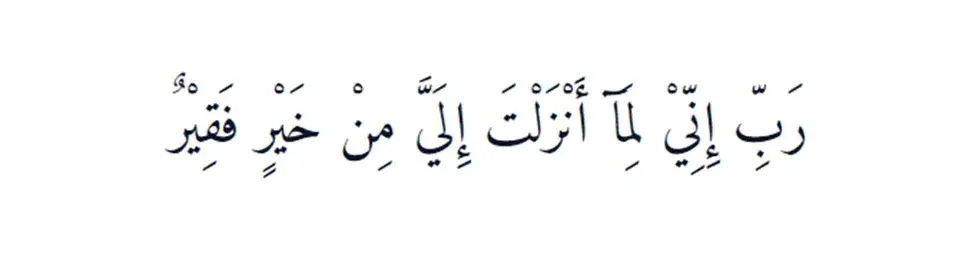 رَبِّ إِنِّيْ لِمَآ أَنْزَلْتَ إِلَيَّ مِنْ خَيْرٍ فَقِيْرٌ